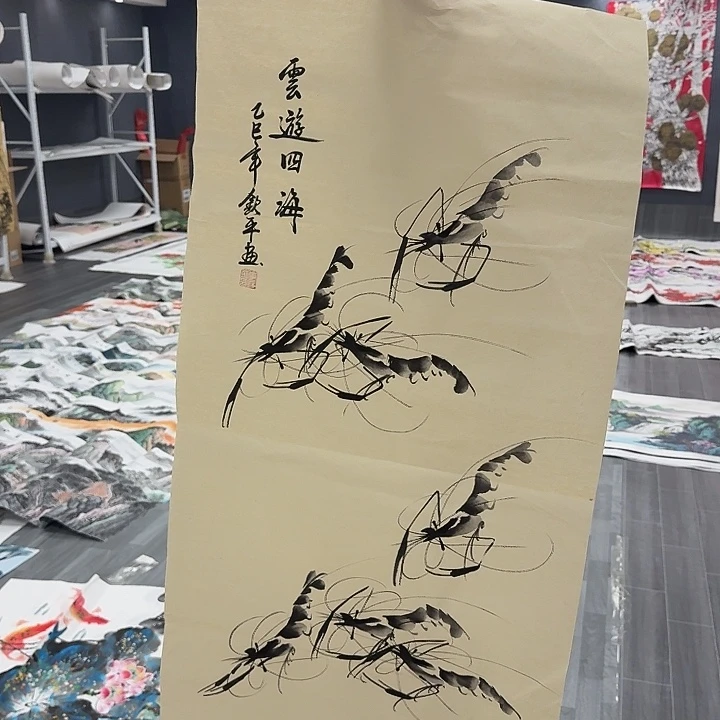 雲遊四海
乙巳年 欽平画